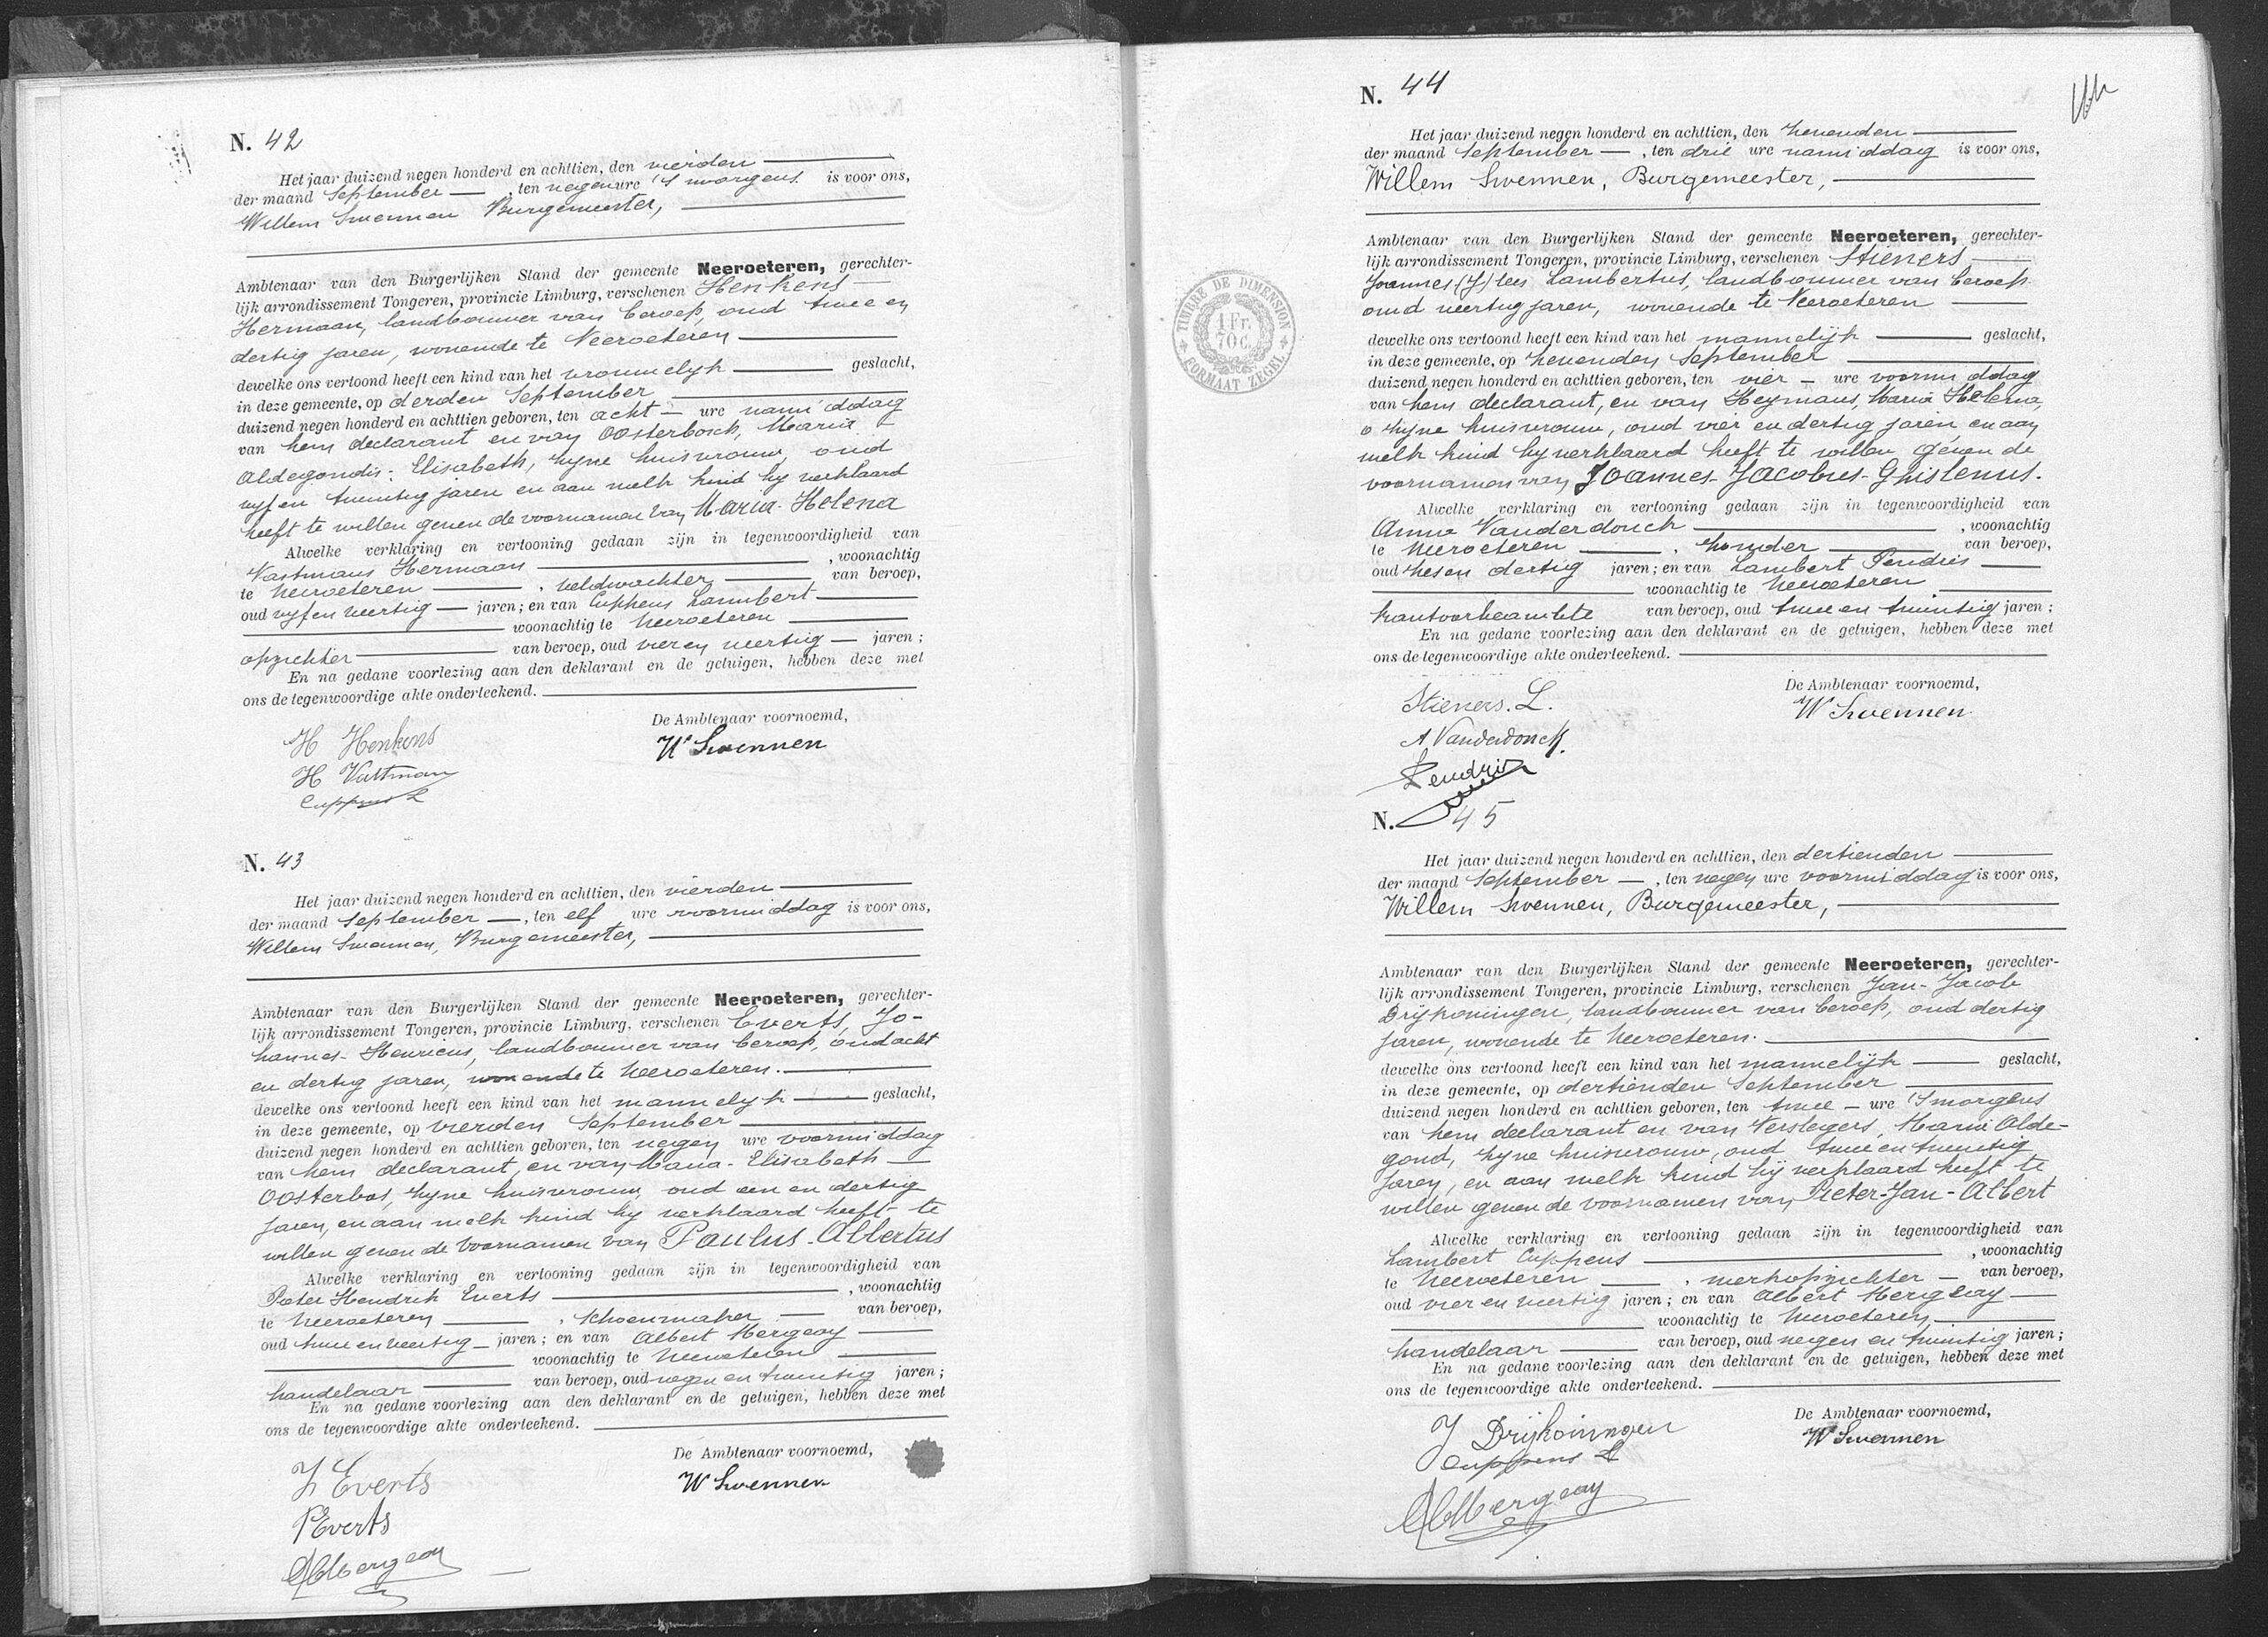 N. 42
Het jaar duizend negen honderd en achttien, den vierden
der maand September, ten negen ure 's morgens is voor ons,
Willem Swennen Burgemeester,
Ambtenaar van den Burgerlijken Stand der gemeente Neeroeteren, gerechter-
lijk arrondissement Tongeren, provincie Limburg, verschenen Henkens
Hermaan, landbouwer van beroep, oud twee en
dertig jaren, wonende te Neeroeteren
dewelke ons vertoond heeft een kind van het vrouwelijk geslacht,
in deze gemeente, op derden September
duizend negen honderd en achttien geboren, ten acht ure namiddag
van hem declarant en van Oosterbosch, Maria
Aldegondis-Elisabeth, zijne huisvrouw, oud
vijf en twintig jaren en aan welk kind hij verklaard
heeft te willen geven de voornamen van Maria-Helena
Alwelke verklaring en vertooning gedaan zijn in tegenwoordigheid van
Vastmans Hermaan, woonachtig
te Neeroeteren, veldwachter van beroep,
oud vijf en veertig jaren; en van Cuppens Lambert
woonachtig te Neeroeteren
opzichter van beroep, oud vier en veertig jaren;
En na gedane voorlezing aan den deklarant en de getuigen, hebben deze met
ons de tegenwoordige akte onderteekend.
De Ambtenaar voornoemd,
H Henkens
W Swennen
H Vastman
Cuppens L
N. 43
Het jaar duizend negen honderd en achttien, den vierden
der maand September, ten elf ure voormiddag is voor ons,
Willem Swennen, Burgemeester,
Ambtenaar van den Burgerlijken Stand der gemeente Neeroeteren, gerechter-
lijk arrondissement Tongeren, provincie Limburg, verschenen Everts, Jo-
hannes-Henricus, landbouwer van beroep, oud acht
en dertig jaren, wonende te Neeroeteren.
dewelke ons vertoond heeft een kind van het mannelijk geslacht,
in deze gemeente, op vierden September
duizend negen honderd en achttien geboren, ten negen ure voormiddag
van hem declarant, en van Maria-Elisabeth
Oosterbos, zijne huisvrouw, oud een en dertig
jaren, en aan welk kind hij verklaard heeft te
willen geven de voornamen van Paulus-Albertus
Alwelke verklaring en vertooning gedaan zijn in tegenwoordigheid van
Pieter Hendrik Everts, woonachtig
te Neeroeteren, schoenmaker van beroep,
oud twee en veertig jaren; en van Albert Mergeay
woonachtig te Neeroeteren
handelaar van beroep, oud negen en twintig jaren;
En na gedane voorlezing aan den deklarant en de getuigen, hebben deze met
ons de tegenwoordige akte onderteekend.
De Ambtenaar voornoemd,
Everts
W Swennen
P Everts
Mergeay
N. 44
Het jaar duizend negen honderd en achttien, den zevenden
der maand September, ten drie ure namiddag is voor ons,
Willem Swennen, Burgemeester,
Ambtenaar van den Burgerlijken Stand der gemeente Neeroeteren, gerechter-
lijk arrondissement Tongeren, provincie Limburg, verschenen Stieners
Joannes Lambertus, landbouwer van beroep
oud veertig jaren, wonende te Neeroeteren
dewelke ons vertoond heeft een kind van het mannelijk geslacht,
in deze gemeente, op zevenden September
duizend negen honderd en achttien geboren, ten vier ure voormiddag
van hem declarant, en van Heymans, Maria Helena,
zijne huisvrouw, oud vier en dertig jaren en aan
welk kind hij verklaard heeft te willen geven de
voornamen van Joannes-Jacobus-Ghislenus.
Alwelke verklaring en vertooning gedaan zijn in tegenwoordigheid van
Vanderdonck, woonachtig
te Neeroeteren, van beroep,
oud zes en dertig jaren; en van Lambert Pendris
woonachtig te Neeroeteren
kantoorbeambte van beroep, oud twee en twintig jaren;
En na gedane voorlezing aan den deklarant en de getuigen, hebben deze met
ons de tegenwoordige akte onderteekend.
De Ambtenaar voornoemd,
Stieners. L.
W Swennen
A Vanderdonck
Pendris
TIMBRE DE DIMENSION
1 Fr. 70 C.
FORMAAT ZEGEL
N. 45
Het jaar duizend negen honderd en achttien, den dertienden
der maand September, ten negen ure voormiddag is voor ons,
Willem Swennen, Burgemeester,
Ambtenaar van den Burgerlijken Stand der gemeente Neeroeteren, gerechter-
lijk arrondissement Tongeren, provincie Limburg, verschenen Jan-Jacob
Drijkoningen, landbouwer van beroep, oud dertig
jaren, wonende te Neeroeteren.
dewelke ons vertoond heeft een kind van het mannelijk geslacht,
in deze gemeente, op dertienden September
duizend negen honderd en achttien geboren, ten twee ure 's morgens
van hem declarant en van Verslegers, Maria Alde-
gond, zijne huisvrouw, oud twee en twintig
jaren, en aan welk kind hij verklaard heeft te
willen geven de voornamen van Pieter-Jan-Albert
Alwelke verklaring en vertooning gedaan zijn in tegenwoordigheid van
Lambert Cuppens, woonachtig
te Neeroeteren, werkopzichter van beroep,
oud vier en veertig jaren; en van Albert Mergeay
woonachtig te Neeroeteren,
handelaar van beroep, oud negen en twintig jaren;
En na gedane voorlezing aan den deklarant en de getuigen, hebben deze met
ons de tegenwoordige akte onderteekend.
De Ambtenaar voornoemd,
J Drijkoningen
W Swennen
Cuppens L
Mergeay